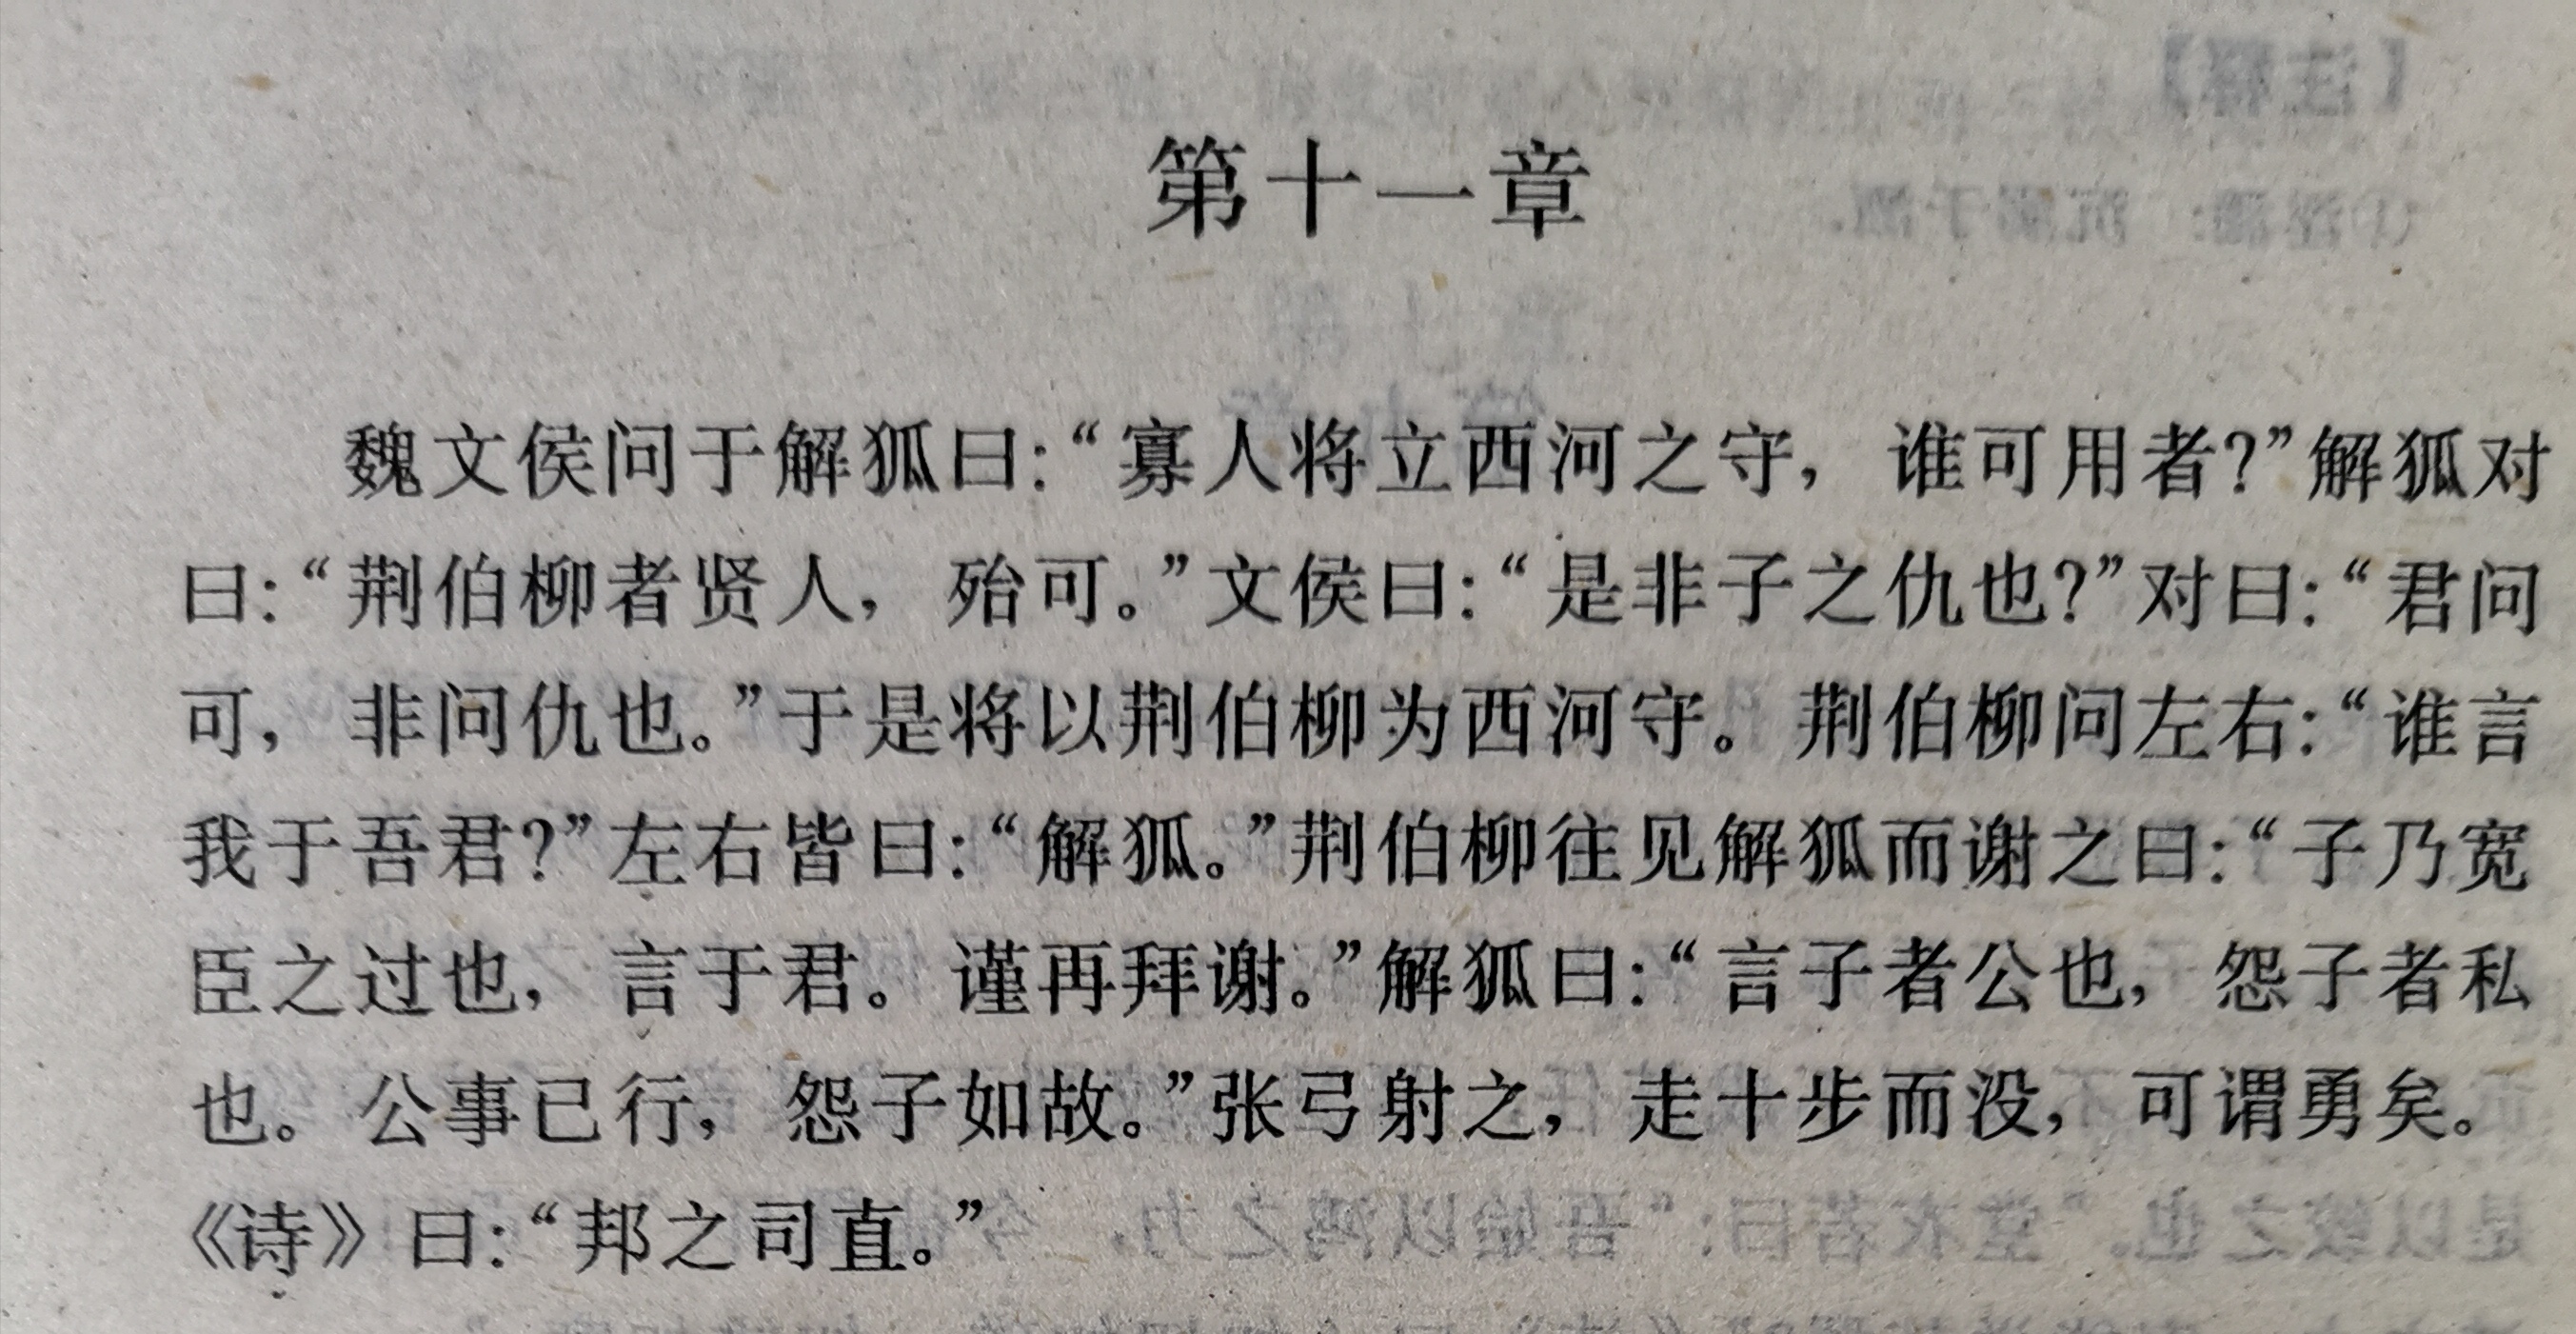 第十一章
魏文侯问于解狐曰：“寡人将立西河之守，谁可用者？”解狐对
曰：“荆伯柳者贤人，殆可。”文侯曰：“是非子之仇也？”对曰：“君问
可，非问仇也。”于是将以荆伯柳为西河守。荆伯柳问左右：“谁言
我于吾君？”左右皆曰：“解狐。”荆伯柳往见解狐而谢之曰：“子乃宽
臣之过也，言于君。谨再拜谢。”解狐曰：“言子者公也，怨子者私
也。公事已行，怨子如故。”张弓射之，走十步而没，可谓勇矣。
《诗》曰：“邦之司直。”